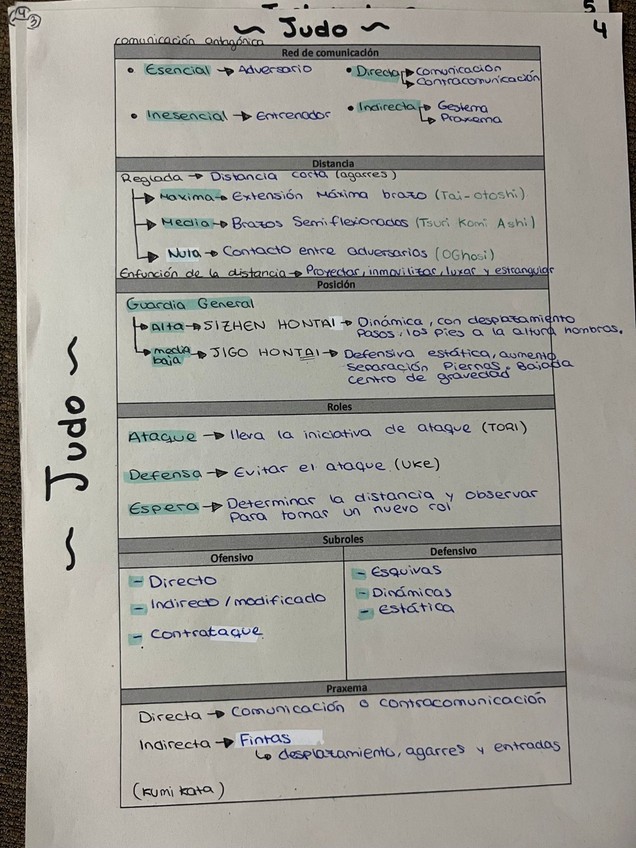 4
3
5
4
~ Judo ~
comunicación antagónica
Red de comunicación
• Esencial → Adversario
• Directa → Comunicación
→ Contracomunicación
• Inesencial → Entrenador
• Indirecta → Gestema
→ Praxema
Distancia
Reglada → Distancia corta (agarres)
→ Maxima → Extensión Máxima brazo (Tai-otoshi)
→ Media → Brazos Semiflexionados (Tsuri Komi Ashi)
→ Nula → Contacto entre adversarios (OGhosi)
Enfunción de la distancia → Proyectar, inmovilizar, luxar y estrangular
Posición
Guardia General
→ Alta → SIZHEN HONTAI → Dinámica, con desplazamiento
Pasos, los pies a la altura hombros.
→ media baja → JIGO HONTAI → Defensiva estática, aumento
separación Piernas. Bajada
centro de gravedad
Roles
Ataque → lleva la iniciativa de ataque (TORI)
Defensa → Evitar el ataque (UKE)
Espera → Determinar la distancia y observar
Para tomar un nuevo rol
Subroles
Ofensivo
- Directo
- Indirecto/modificado
- Contrataque
Defensivo
- Esquivas
- Dinámicas
- Estática
Praxema
Directa → Comunicación o contracomunicación
Indirecta → Fintas
↳ desplazamiento, agarres y entradas
(Kumi Kata)
~ Judo ~